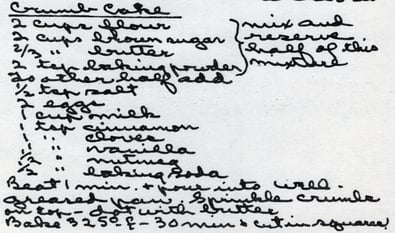 Crumb Cake
2 cups flour
2 cups brown sugar
2/3 " butter
2 tsp baking powder
mix and
reserve
half of this
mixture
To other half add
1/2 tsp salt
2 eggs
1 cup milk
1 tsp cinnamon
1 " cloves
1 " vanilla
1/2 " nutmeg
1/2 " baking soda
Beat 1 min. + pour into well-
greased pan. Sprinkle crumbs
on top - dot with butter
Bake 325° F - 30 min & cut in squares